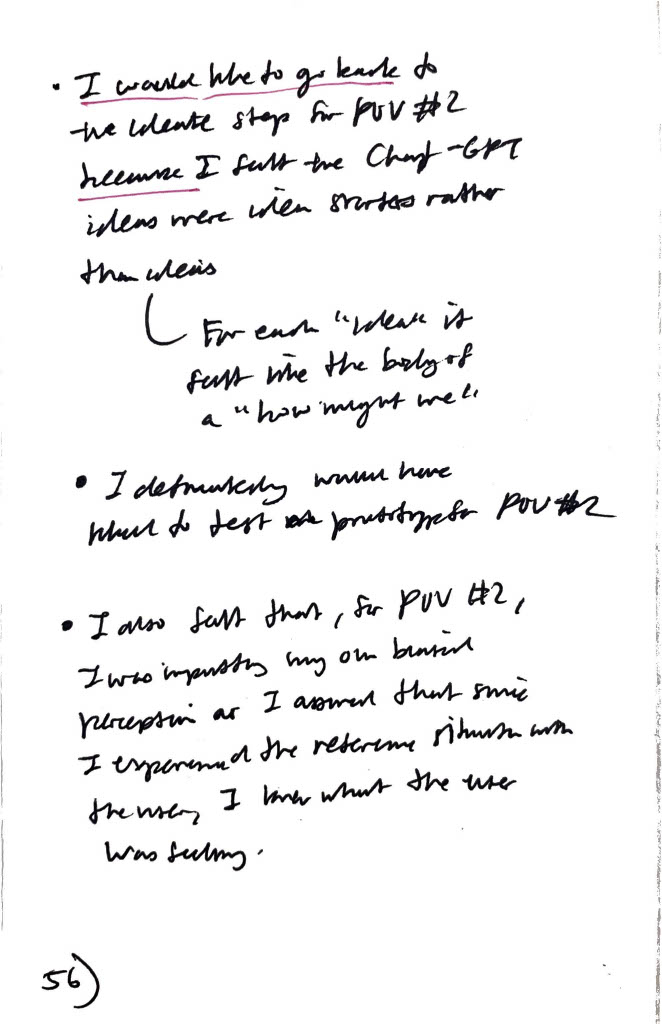 • I would like to go back to
the ideate step for POV #2
because I felt the Chat-GPT
ideas were idea starters rather
than ideas
For each "idea" it
felt like the body of
a "how might we"
• I definitely would have
liked to test prototype for POV #2
• I also felt that, for POV #2,
I was imposing my own biased
perception as I assumed that since
I experienced the reference situation with
the user, I knew what the user
was feeling.
56)